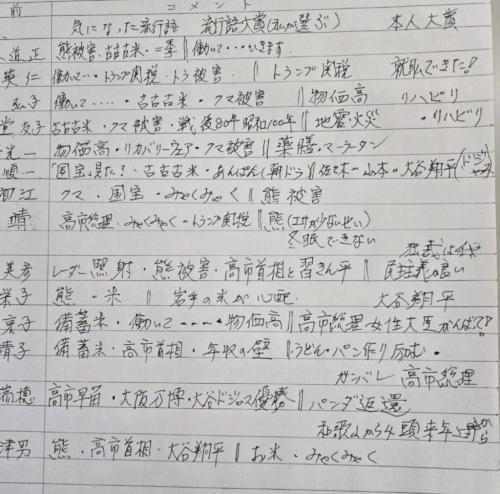 前 コメント
気になった流行語 流行語大賞(私が選ぶ) 本人大賞
道正 熊被害・古古古米・二季 ‖ 働いて・・・いきます。
英仁 働いて・・・トランプ関税・トラ被害・ ‖ トランプ関税 就職できた!
弘子 働いて・・・・・古古古米・クマ被害 ‖ 物価高 リハビリ
堂友子 古古古米・クマ被害・戦後80年昭和100年 ‖ 地震・火災 ・リハビリ
光一 物価高・リカバリーウェア・クマ被害 ‖ 薬膳・マーラータン
順一 「国宝」見た!・古古古米・あんぱん(朝ドラ) 佐々木・山本・大谷翔平
江 クマ・国宝・みゃくみゃく ‖ 熊被害
靖 高市総理・みゃくみゃく・トランプ関税 ‖ 熊(エサが少ないせい)
冬眠できない
美彦 レーダー照射・熊被害・高市首相と習きん平 ‖ 民主主義の良い
栄子 熊・米 ‖ 岩手の米が心配 大谷翔平
京子 備蓄米・働いて・・・・・物価高 ‖ 高市総理女性大臣がんばって!
青子 備蓄米・高市首相・年収の壁 ‖ うどん・パン作り励む・
ガンバレ 高市総理
瑞穂 高市早苗・大阪万博・大谷ドジャース優勝 ‖ パンダ返還
和歌山から4頭来年上野から
津男 熊・高市首相・大谷翔平 ‖ お米・みゃくみゃく